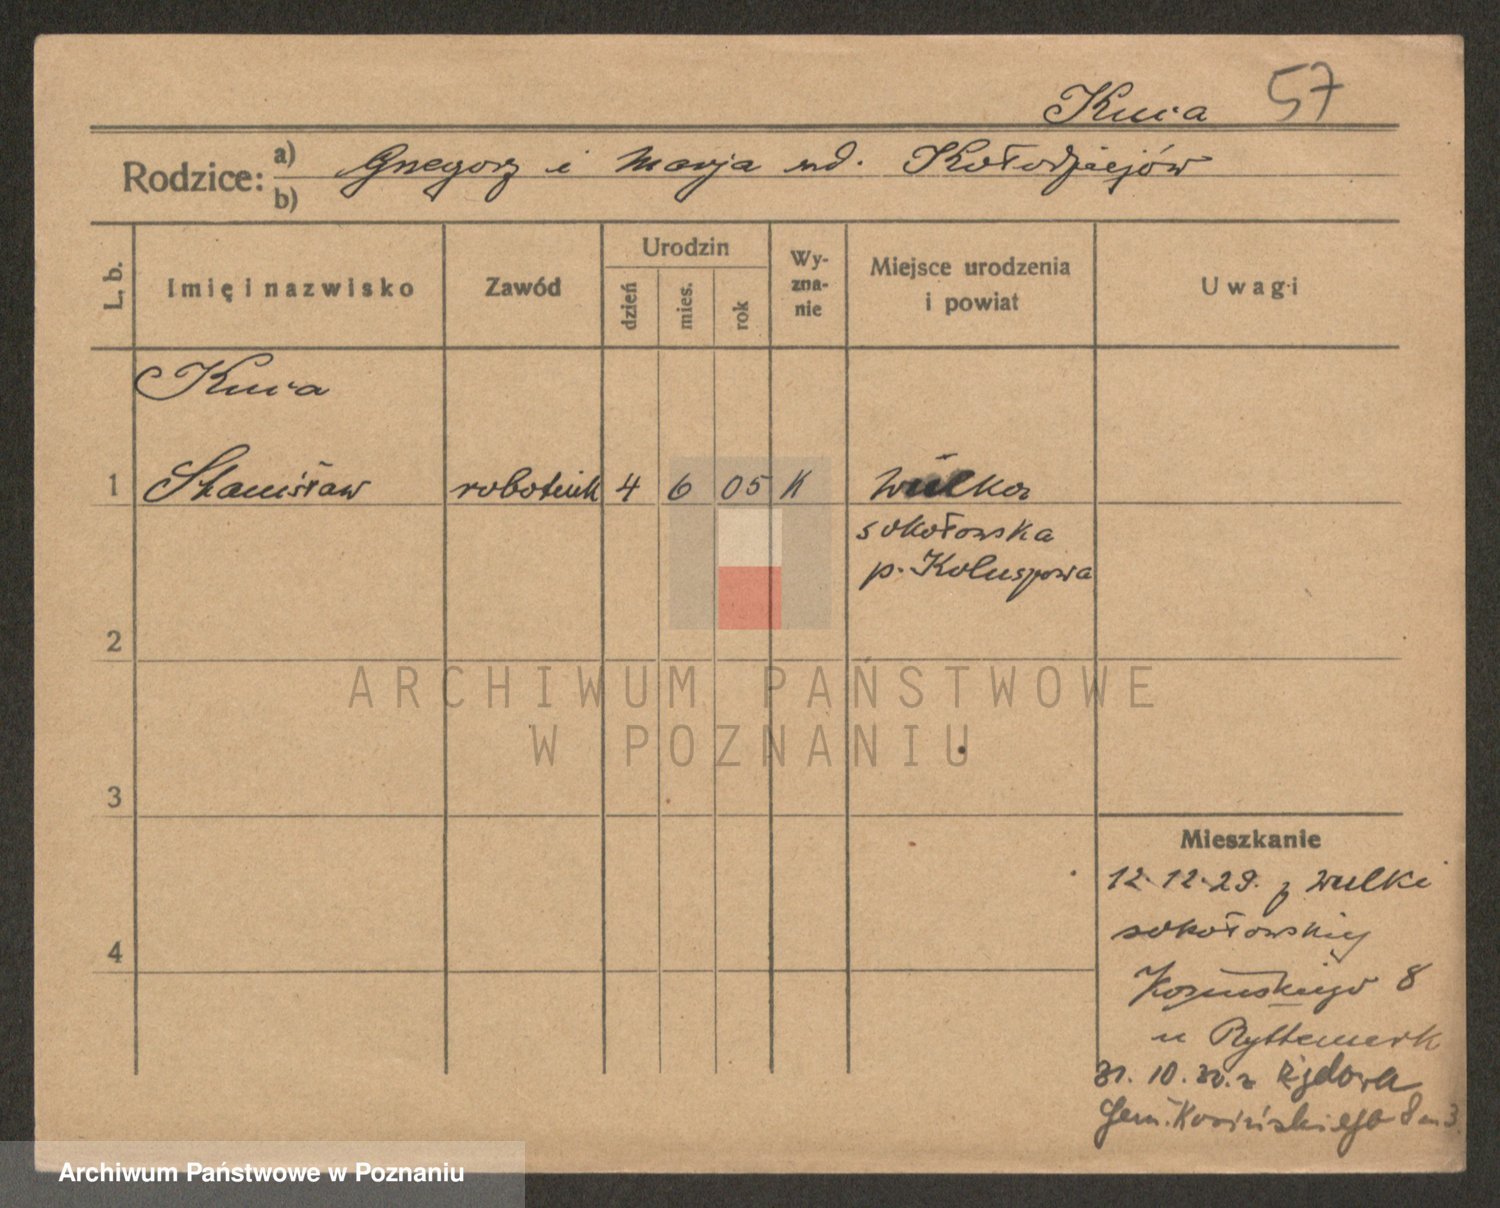 Kuca 57
Rodzice: a) Grzegorz i Marja zd. Kołodziejów
b)
L. b.
Imię i nazwisko
Zawód
Urodzin
dzień
mies.
rok
Wy-
zna-
nie
Miejsce urodzenia
i powiat
Uwagi
Kuca
1 Stanisław robotnik 4 6 05 K Wulka
sokołowska
p. Koluszowa
2
3
4
Mieszkanie
12.12.29. z Wulki
sokołowskiej
Kosińskiego 8
u
31. 10. 30. z
Gen. Kosińskiego 8 m 3.
ARCHIWUM PAŃSTWOWE
W POZNANIU
Archiwum Państwowe w Poznaniu